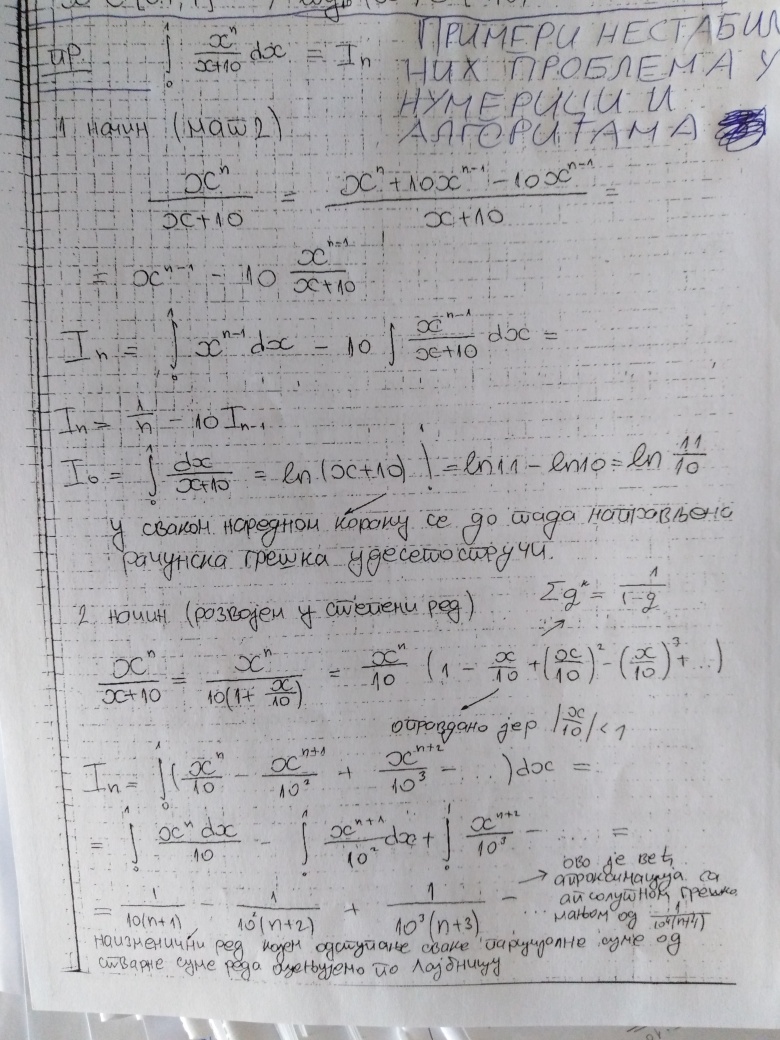 ПР. ∫₀¹ xⁿ/(x+10) dx = Iₙ
ПРИМЕРИ НЕСТАБИЛ
НИХ ПРОБЛЕМА У
НУМЕРИЦИ И
АЛГОРИТАМА
1 начин (мат 2)
xⁿ/(x+10) = (xⁿ+10xⁿ⁻¹-10xⁿ⁻¹)/(x+10) =
= xⁿ⁻¹ - 10 xⁿ⁻¹/(x+10)
Iₙ = ∫₀¹ xⁿ⁻¹dx - 10 ∫ xⁿ⁻¹/(x+10) dx =
Iₙ = 1/n - 10Iₙ₋₁
I₀ = ∫₀¹ dx/(x+10) = ln(x+10) |₀¹ = ln11 - ln10 = ln 11/10
у сваком наредном кораку се до тада направљена
рачунска грешка удесетостручи.
2 начин (развојем у степени ред) Σgᵏ = 1/(1-g)
xⁿ/(x+10) = xⁿ/(10(1+x/10)) = xⁿ/10 (1 - x/10 + (x/10)² - (x/10)³ + ...)
оправдано јер |x/10| < 1
Iₙ = ∫₀¹ (xⁿ/10 - xⁿ⁺¹/10² + xⁿ⁺²/10³ - ...) dx =
= ∫₀¹ xⁿdx/10 - ∫₀¹ xⁿ⁺¹/10² dx + ∫₀¹ xⁿ⁺²/10³ - .... =
= 1/(10(n+1)) - 1/(10²(n+2)) + 1/(10³(n+3)) - ...
ово је већ
апроксимација са
апсолутном грешком
мањом од 1/(10⁴(n+4))
наизменични ред којем одступање сваке парцијалне суме од
стварне суме реда оцењујемо по Лајбницу